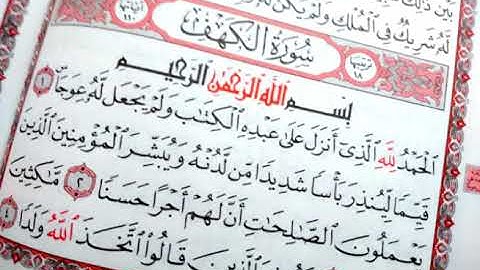 لَهُۥ شَرِيكٌ فِى ٱلْمُلْكِ وَلَمْ يَكُن لَّهُ
آيَاتُهَا ١١٠
سُورَةُ الْكَهْفِ
تَرْتِيبُهَا ١٨
بِسْمِ ٱللَّهِ ٱلرَّحْمَٰنِ ٱلرَّحِيمِ
ٱلْحَمْدُ لِلَّهِ ٱلَّذِىٓ أَنزَلَ عَلَىٰ عَبْدِهِ ٱلْكِتَٰبَ وَلَمْ يَجْعَل لَّهُۥ عِوَجَا ١
قَيِّمًا لِّيُنذِرَ بَأْسًا شَدِيدًا مِّن لَّدُنْهُ وَيُبَشِّرَ ٱلْمُؤْمِنِينَ ٱلَّذِينَ
يَعْمَلُونَ ٱلصَّٰلِحَٰتِ أَنَّ لَهُمْ أَجْرًا حَسَنًا ٢ مَّٰكِثِينَ
ٱلَّذِينَ قَالُوا۟ ٱتَّخَذَ ٱللَّهُ وَلَدًا ٤